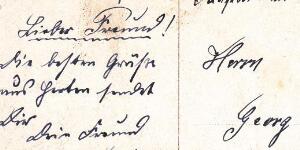 Lieber Freund!
die besten Grüße
aus Herten sendet
Dir
Dein Freund
Herrn
Georg